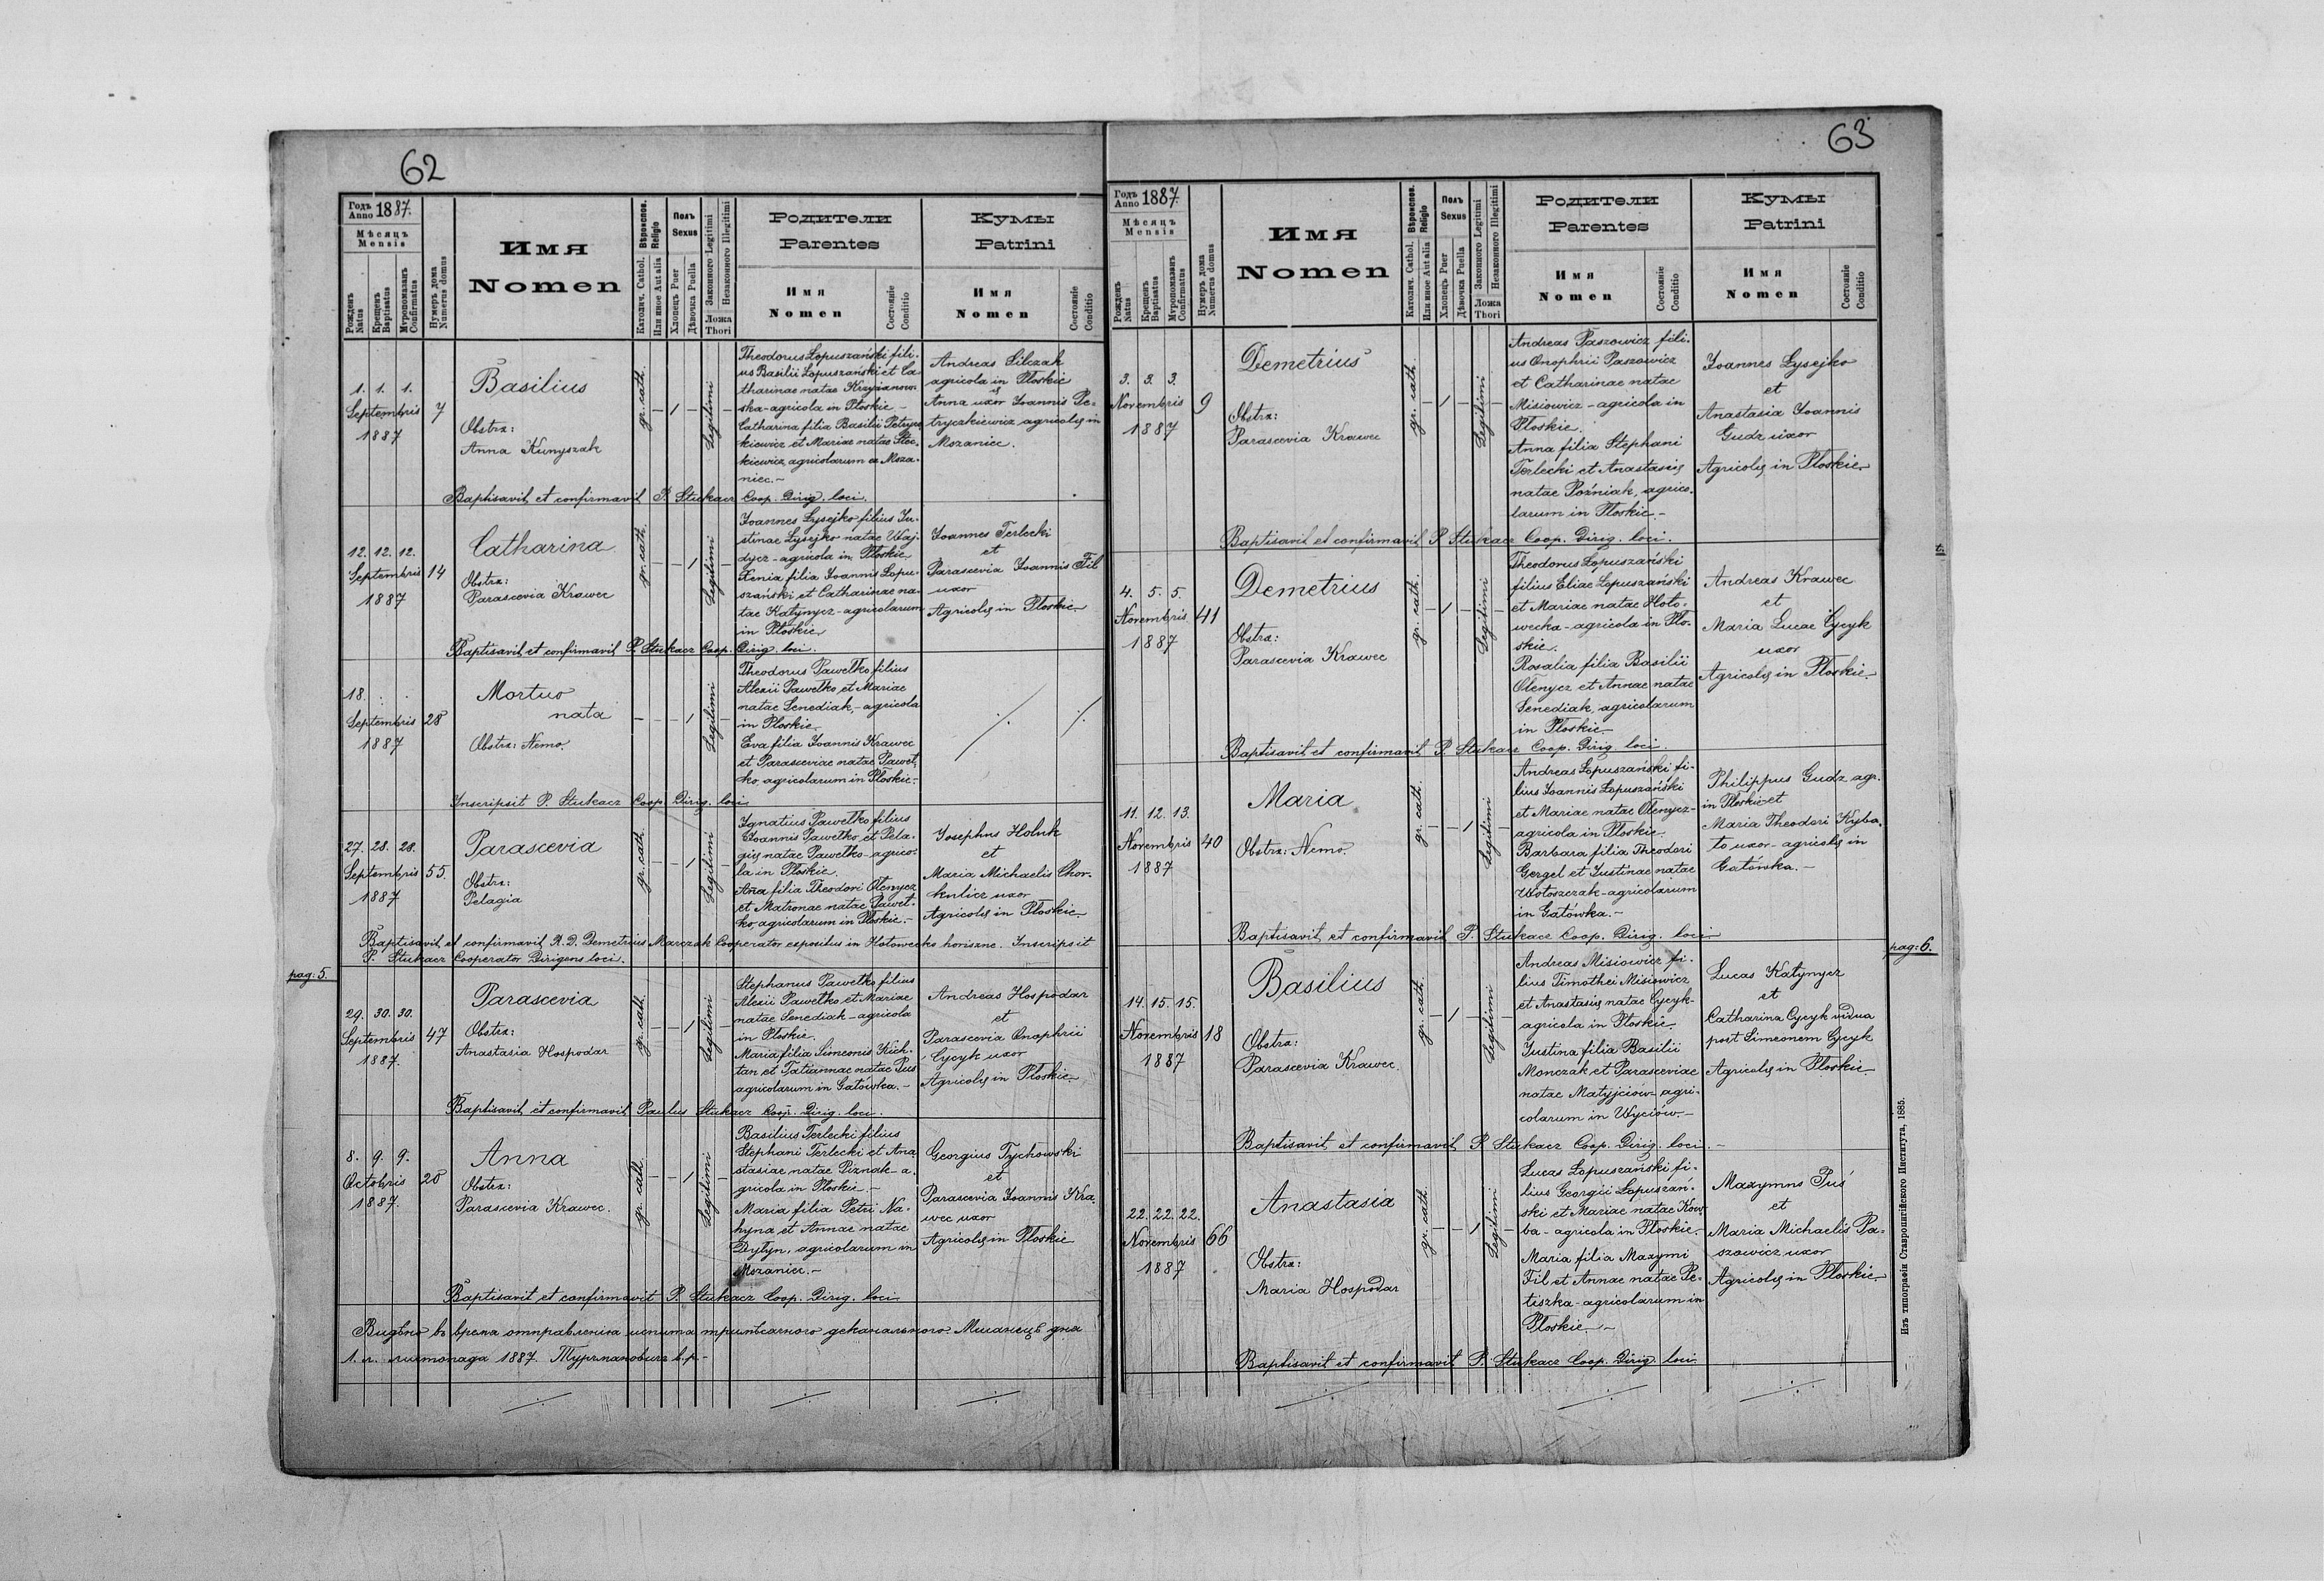 62
Годъ Anno 1887.
Мѣсяцъ
Mensis
Рожденъ Natus
Крещенъ Baptisatus
Муропомазанъ Confirmatus
Нумеръ дома Numerus domus
Имя
Nomen
Вѣроиспов. Religio
Католич. Cathol.
Или иное Aut alia
Полъ
Sexus
Хлопецъ Puer
Дѣвочка Puella
Законного Legitimi
Незаконного Illegitimi
Ложа
Thori
Родители
Parentes
Имя
Nomen
Состояніе
Conditio
Кумы
Patrini
Имя
Nomen
Состояніе
Conditio
1. 1. 1.
Septembris
1887
7
Basilius
Obstrx:
Anna Kunyszak
gr. cath.
– 1 – –
Legitimi
Theodorus Łopuszański fili-
us Basilii Łopuszański et Ca-
tharinae natae Krzyżanow-
ska - agricola in Płoskie –
Catharina filia Basilii Petrycz-
kiewicz et Mariae natae
kiewicz, agricolarum ex Msza-
niec. –
Andreas Silczak
agricola in Płoskie
Anna uxor Ioannis Pe-
tryczkiewicz agricolę in
Mszaniec.
Baptisavit et confirmavit P. Stukacz Coop. Dirig. loci.
12. 12. 12.
Septembris
1887
14
Catharina
Obstrx:
Parascevia Krawec
gr. cath.
– – 1 –
Legitimi
Ioannes Łysejko filius Iu-
stinae Łysejko natae Waj-
dycz - agricola in Płoskie
Xenia filia Ioannis Łopu-
szański et Catharinae na-
tae Katynycz - agricolarum
in Płoskie
Ioannes Terlecki
et
Parascevia Ioannis Fil
uxor
Agricolę in Płoskie
Baptisavit et confirmavit P. Stukacz Coop. Dirig. loci.
18.
Septembris
1887
28
Mortuo
nata
Obstrx: Nemo.
– – – 1 –
Legitimi
Theodorus Pawełko filius
Alexii Pawełko et Mariae
natae Senediak, - agricola
in Płoskie
Eva filia Ioannis Krawec
et Parasceviae natae Paweł-
ko, agricolarum in Płoskie. –
Inscripsit P. Stukacz Coop. Dirig. loci
27. 28. 28.
Septembris
1887
55.
Parascevia
Obstrx:
Pelagia
gr. cath.
– – 1 –
Legitimi
Ignatius Pawełko filius
Ioannis Pawełko et Pela-
gię natae Pawełko - agrico-
la in Płoskie.
Anna filia Theodori Ołenycz
et Matronae natae Paweł-
ko, agricolarum in Płoskie. –
Iosephus Hołuk
et
Maria Michaelis Chor-
kulicz uxor
Agricolę in Płoskie
Baptisavit et confirmavit R. D. Demetrius Marczak Cooperator expositus in Hołowecko horiszne. Inscripsit
P. Stukacz Cooperator Dirigens loci.
pag: 5.
29. 30. 30.
Septembris
1887.
47
Parascevia
Obstrx:
Anastasia Hospodar
gr. cath.
– – 1 –
Legitimi
Stephanus Pawełko filius
Alexii Pawełko et Mariae
natae Senediak - agricola
in Płoskie.
Maria filia Simeonis Kich-
tan et Tatiannae natae Pus
agricolarum in Gatówka. –
Andreas Hospodar
et
Parascevia Onaphrii
Cycyk uxor
Agricolę in Płoskie
Baptisavit et confirmavit Paulus Stukacz Coop. Dirig. loci.
8. 9. 9.
Octobris
1887.
28
Anna
Obstrx:
Parascevia Krawec.
gr. cath.
– – 1 –
Legitimi
Basilius Terlecki filius
Stephani Terlecki et Ana-
stasiae natae Piznak - a-
gricola in Płoskie. –
Maria filia Petri Na-
hyna et Annae natae
Dytyn, agricolarum in
Mszaniec. –
Georgius Tychowski
et
Parascevia Ioannis Kra-
wec uxor
Agricolę in Płoskie
Baptisavit et confirmavit P. Stukacz Coop. Dirig. loci
Видѣно въ время отправленія испита деканального Мшанецъ дня
1. н. листопада 1887. Турманович в.р. –
63
Годъ Anno 1887.
Мѣсяцъ
Mensis
Рожденъ Natus
Крещенъ Baptisatus
Муропомазанъ Confirmatus
Нумеръ дома Numerus domus
Имя
Nomen
Вѣроиспов. Religio
Католич. Cathol.
Или иное Aut alia
Полъ
Sexus
Хлопецъ Puer
Дѣвочка Puella
Законного Legitimi
Незаконного Illegitimi
Ложа
Thori
Родители
Parentes
Имя
Nomen
Состояніе
Conditio
Кумы
Patrini
Имя
Nomen
Состояніе
Conditio
3. 3. 3.
Novembris
1887
9
Demetrius
Obstrx:
Parascevia Krawec
gr. cath.
– 1 – –
Legitimi
Andreas Paszowicz fili-
us Onophrii Paszowicz
et Catharinae natae
Misiowicz - agricola in
Płoskie.
Anna filia Stephani
Terlecki et Anastasię
natae Poźniak, agrico-
larum in Płoskie. –
Ioannes Łysejko
et
Anastasia Ioannis
Gudz uxor
Agricolę in Płoskie
Baptisavit et confirmavit P. Stukacz Coop. Dirig. loci.
4. 5. 5.
Novembris
1887
41
Demetrius
Obstrx:
Parascevia Krawec
gr. cath.
– 1 – –
Legitimi
Theodorus Łopuszański
filius Eliae Łopuszański
et Mariae natae Hoło-
wecka - agricola in Pło-
skie.
Rosalia filia Basilii
Ołenycz et Annae natae
Senediak, agricolarum
in Płoskie
Andreas Krawec
et
Maria Lucae Cycyk
uxor
Agricolę in Płoskie.
Baptisavit et confirmavit P. Stukacz Coop. Dirig. loci.
11. 12. 13.
Novembris
1887
40
Maria
Obstrx: Nemo.
gr. cath.
– – 1 –
Legitimi
Andreas Łopuszański fi-
lius Ioannis Łopuszański
et Mariae natae Ołenycz -
agricola in Płoskie.
Barbara filia Theodori
Gergel et Iustinae natae
Wołoszczak - agricolarum
in Gatówka. –
Philippus Gudz agr.
in Płoskie et
Maria Theodori Kyba-
ło uxor - agricolę in
Gatówka. –
Baptisavit et confirmavit P. Stukacz Coop. Dirig. loci
pag: 6.
14. 15. 15.
Novembris
1887
18
Basilius
Obstrx:
Parascevia Krawec.
gr. cath.
– 1 – –
Legitimi
Andreas Misiowicz fi-
lius Timothei Misiowicz
et Anastasię natae Cycyk -
agricola in Płoskie
Iustina filia Basilii
Monczak et Parasceviae
natae Matyjciów agri-
colarum in Wyciów –
Lucas Katynycz
et
Catharina Cycyk vidua
post Simeonem Cycyk
Agricolę in Płoskie
Baptisavit et confirmavit P. Stukacz Coop. Dirig. loci. –
22. 22. 22.
Novembris
1887
66
Anastasia
Obstrx:
Maria Hospodar
gr. cath.
– – 1 –
Legitimi
Lucas Łopuszański fi-
lius Georgii Łopuszań-
ski et Mariae natae Kow-
ba - agricola in Płoskie. –
Maria filia Maxymi
Fil et Annae natae Pe-
tiszka - agricolarum in
Płoskie –
Maxymus Puś
et
Maria Michaelis Pa-
szowicz uxor
Agricolę in Płoskie
Baptisavit et confirmavit P. Stukacz Coop. Dirig. loci
Изъ типографіи Ставропигійского Института, 1885.